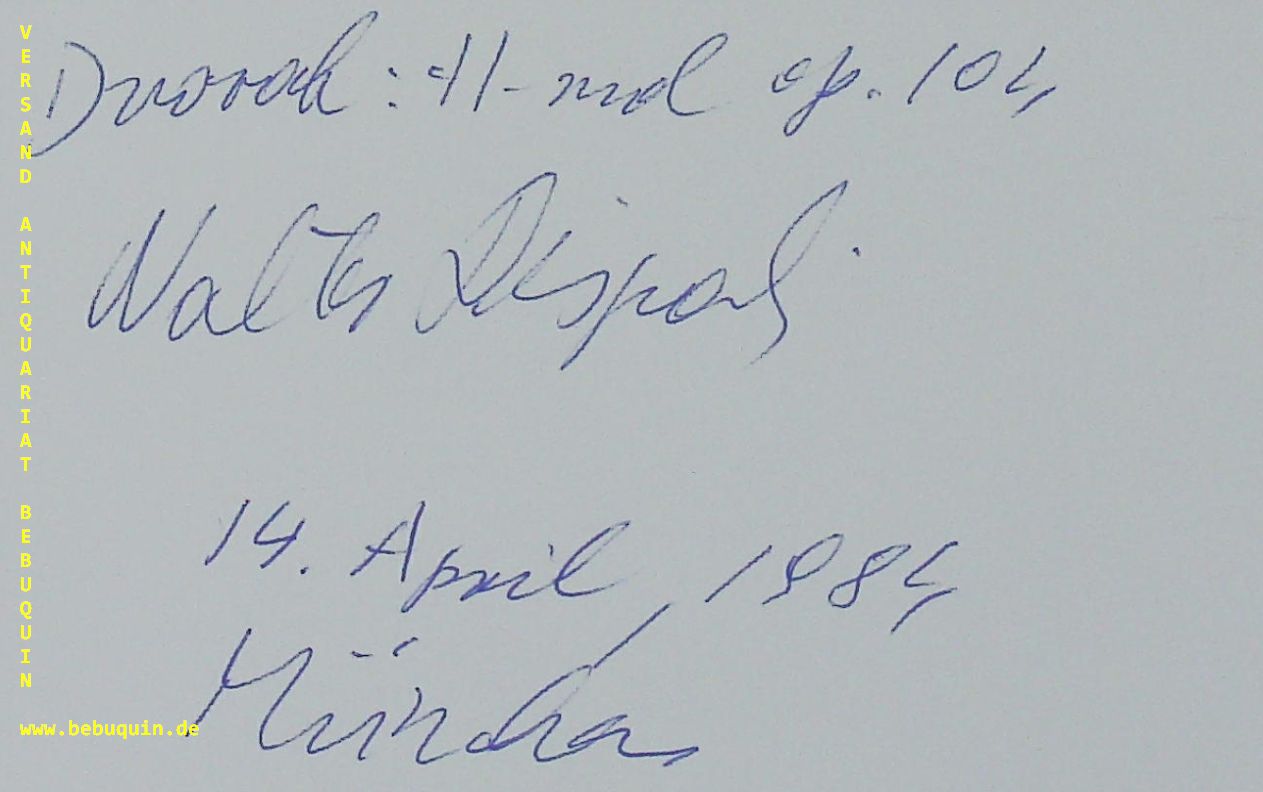 Dvorak: H-mol op. 104
Walter Despalj.
14. April, 1984
München
VERSAND ANTIQUARIAT BEBUQUIN
www.bebuquin.de